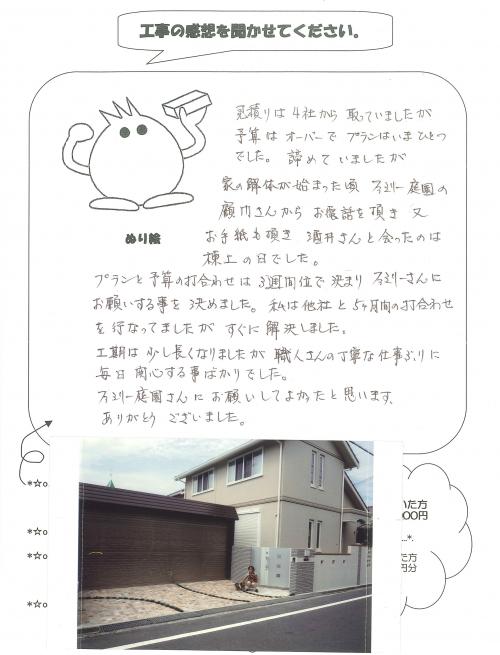 工事の感想を聞かせてください。
見積りは4社から取っていましたが
予算はオーバーでプランはいまひとつ
でした。諦めていましたが
家の解体が始まった頃 ファミリー庭園の
顧問さんからお電話を頂き 又
お手紙も頂き 酒井さんと会ったのは
棟上の日でした。
ぬり絵
プランと予算の打合わせは3週間位で決まり ファミリーさんに
お願いする事を決めました。私は他社と5ヶ月間の打合わせ
を行なってましたが すぐに解決しました。
工期は少し長くなりましたが 職人さんの丁寧な仕事ぶりに
毎日関心する事ばかりでした。
ファミリー庭園さんにお願いしてよかったと思います。
ありがとうございました。
*☆o
いた方
00円
*☆o
...*.
*☆o
た方
円分
*☆o